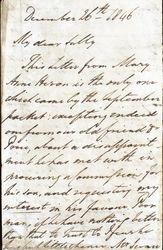 December 26th 1846
My dear Sally
This letter from Mary
Anne Heron is the only one
which came by the September
packet: excepting enclosed
on from our old friend
about a disappoint
ment he has met with in
procuring a commission for
his son, and requesting my
interest in his favour. Poor
man, if he have nothing better
than that to trust to